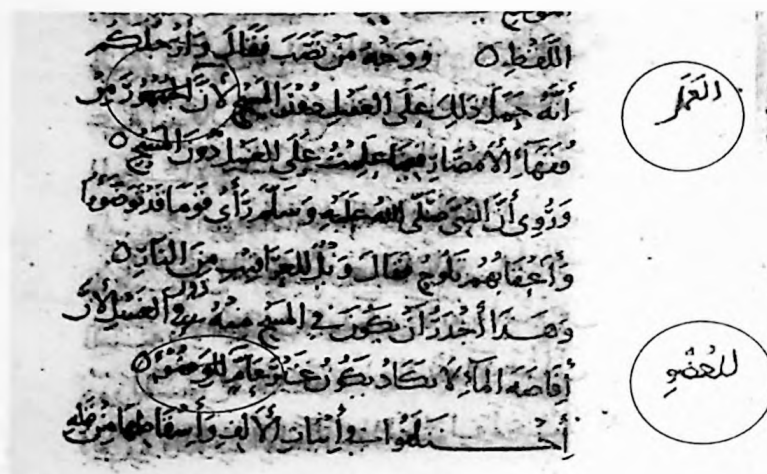 اللفظ ○ ووجه من نصب فقال وأرجلكم
أنه حمل ذلك على الغسل دون المسح لأن الجمهور من
العمل
فقهاء الأمصار فيما علمت على الغسل دون المسح ○
وروي أن النبي صلى الله عليه وسلم رأى قوما قد توضؤا
وأعقابهم تلوح فقال ويل للعراقيب من النار ○
وهذا أجدر أن يكون في المسح منه في الغسل لأن
إفاضة الماء لا يكاد يكون غير عام للوضوء ○
للعضو
أختلفوا في إثبات الألف وإسقاطها من قوله